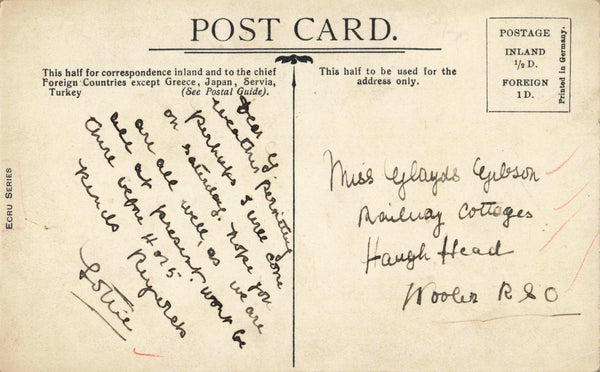 POST CARD.
This half for correspondence inland and to the chief
Foreign Countries except Greece, Japan, Servia,
Turkey (See Postal Guide).
This half to be used for the
address only.
POSTAGE
INLAND
½ D.
FOREIGN
1 D.
Printed in Germany.
ECRU SERIES
Dear G.
weather permitting
perhaps I will come
on saturday. hope you
are all well, as we are
all at present. wont be
there before
kinds Regards
Lottie
Miss Gladys Gibson
Railway Cottages
Haugh Head
Wooler R S O